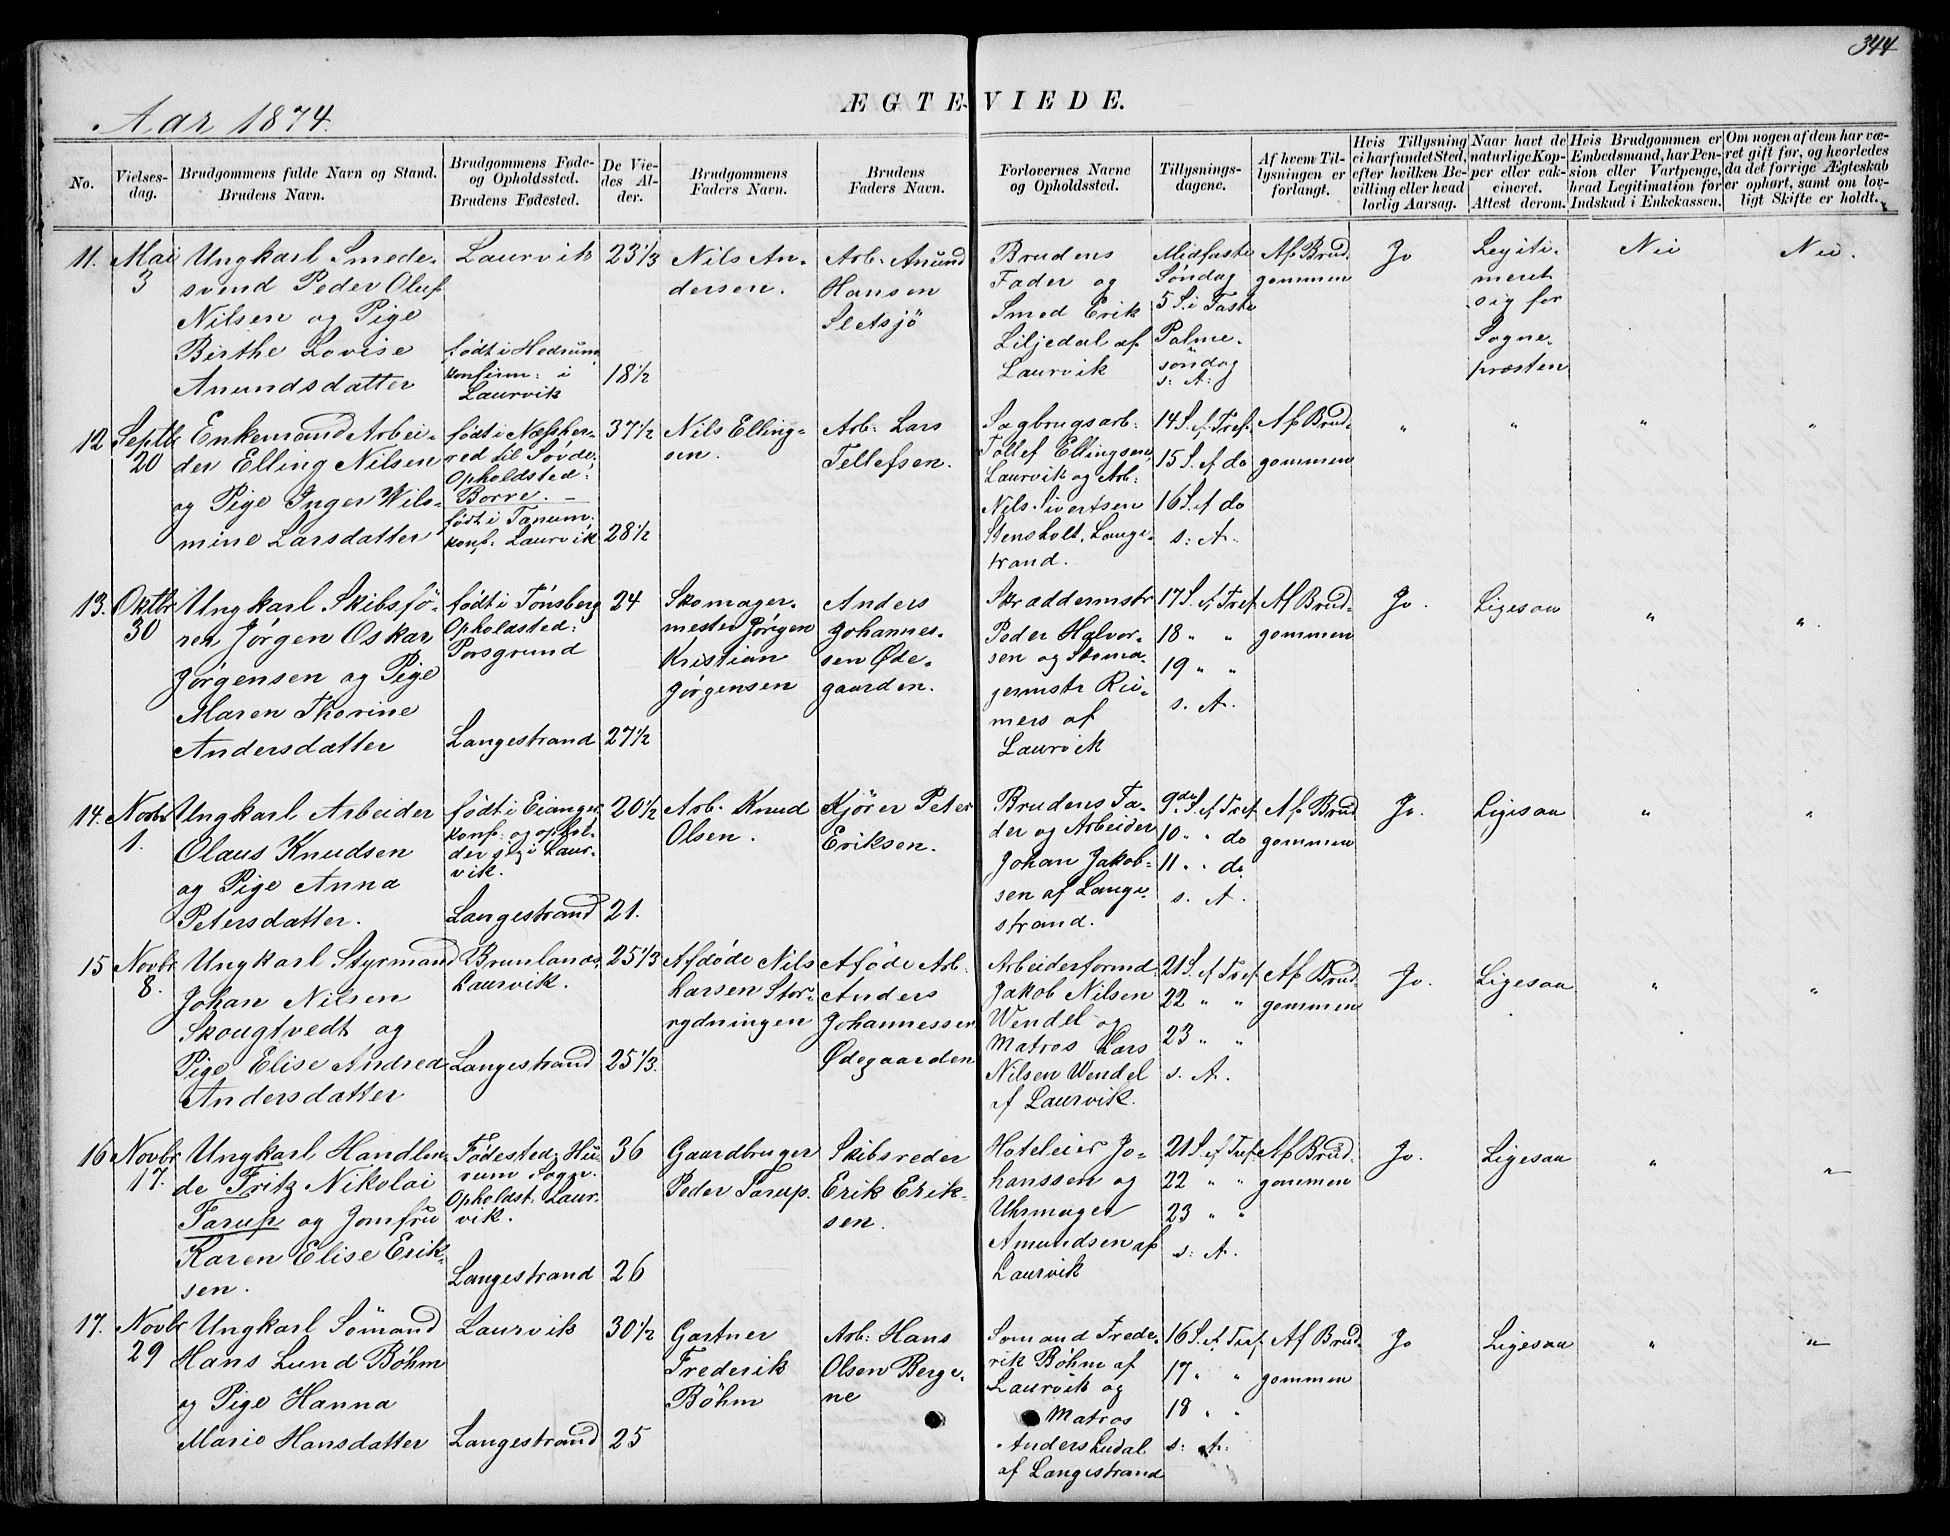 344
Aar 1874.
ÆGTEVIEDE.
No.
Vielses-
dag.
Brudgommens fulde Navn og Stand.
Brudens Navn.
Brudgommens Føde-
og Opholdssted.
Brudens Fødested.
De Vie-
des Al-
der.
Brudgommens
Faders Navn.
Brudens
Faders Navn.
Forlovernes Navne
og Opholdssted.
Tillysnings-
dagene.
Af hvem Til-
lysningen er
forlangt.
Hvis Tillysning
ei har fundet Sted,
efter hvilken Be-
villing eller hvad
lovlig Aarsag.
Naar havt de
naturlige Kop-
per eller vak-
cineret.
Attest derom.
Hvis Brudgommen er
Embedsmand, har Pen-
sion eller Vartpenge,
hvad Legitimation for
Indskud i Enkekassen.
Om nogen af dem har væ-
ret gift før, og hvorledes
da det forrige Ægteskab
er ophørt, samt om lov-
ligt Skifte er holdt.
11.
Mai
3
Ungkarl Smede-
svend Peder Oluf
Nilsen og Pige
Birthe Lovise
Anundsdatter
Laurvik
født i Hedrum
konfirm: i
Laurvik
23 1/3
18 1/2
Nils An-
dersen.
Arb. Anund
Hansen
Sletsjö
Brudens
Fader og
Smed Erik
Liljedal af
Laurvik
Midfaste
Søndag
5 S. i Faste
Palme-
søndag
s: A:
Af Brud-
gommen
Jo
Legiti-
meret
sig for
Sogne-
præsten
Nei
Nei.
12
Septbr
20
Enkemand Arbei-
der Elling Nilsen
og Pige Inger Wils-
mine Larsdatter
født i Næsher-
red til Sövde.
Opholdsted:
Borre. –
født i Tanum.
konf. Laurvik
37 1/2
28 1/2
Nils Elling-
sen.
Arb: Lars
Tellefsen.
Sagbrugsarb:
Tollef Ellingsen,
Laurvik og Arb:
Nils Sivertsen
Stensholt, Lange-
strand.
14 S. ef Tref.
15 S. ef do
16 S. ef do
s: A.
Af Brud-
gommen
"
"
"
"
13.
Oktbr
30
Ungkarl Skibsfö-
rer Jørgen Oskar
Jørgensen og Pige
Maren Thorine
Andersdatter
født i Tønsberg
Opholdsted:
Porsgrund
Langestrand
24
27 1/2
Skomager-
mester Jørgen
Kristian
Jørgensen
Anders
Johannes-
sen Øde-
gaarden.
Skræddermstr
Peder Halvor-
sen og Skoma-
germstr Rei-
mers af
Laurvik
17 S. ef Tref.
18 " "
19 " "
s. A.
Af Brud-
gommen
Jo.
Ligesaa
"
"
14.
Novbr
1.
Ungkarl Arbeider
Olaus Knudsen
og Pige Anna
Petersdatter.
født i Eianger
konf: og ophol-
der sig i Laur-
vik.
Langestrand
20 1/2
21.
Arb. Knud
Olsen.
Kjører Peter
Eriksen.
Brudens Fa-
der og Arbeider
Johan Jakob-
sen af Lange-
strand.
9de S. ef Tref
10 " " do
11 " " do
s. A.
Af Brud
gommen
Jo.
Ligesaa
"
"
15
Novbr
8.
Ungkarl Styrmand
Johan Nilsen
Skougtvedt og
Pige Elise Andrea
Andersdatter
Brunlanæs,
Laurvik.
Langestrand
25 1/3
25 1/3.
Afdøde Nils
Larsen Stor-
rydningen
Aføde Arb.
Anders
Johannessen
Ødegaarden
Arbeiderformd.
Jakob Nilsen
Wendel og
Matros Lars
Nilsen Wendel
af Laurvik.
21 S. ef Tref.
22 " "
23 " "
s. A.
Af Brud-
gommen
Jo.
Ligesaa
"
"
16
Novbr
17.
Ungkarl Handlen-
de Fritz Nikolai
Farup og Jomfru
Karen Elise Erik-
sen.
Fødested:
Opholdst. Laur-
vik.
Langestrand
36
26
Gaardbruger
Peder Farup.
Skibsreder
Erik Erik-
sen.
Hoteleier Jo-
hanssen og
Uhrmager
Amundsen af
Laurvik
21 S. ef Tref.
22 " "
23 " "
s: A.
Af Brud-
gommen
Jo.
Ligesaa
"
"
17.
Novbr
29
Ungkarl Sømand
Hans Lund Bøhm
og Pige Hanna
Marie Hansdatter
Laurvik
Langestrand
30 1/2
25
Gartner
Frederik
Bøhm
Arb: Hans
Olsen Berge-
ne
Sømand Frede-
rik Bøhm af
Laurvik og
Matros
Anders Ludal
af Langestrand
16 S. ef Tref.
17 " "
18 " "
s: A:
Af Brud-
gommen
Jo
Ligesaa
"
"